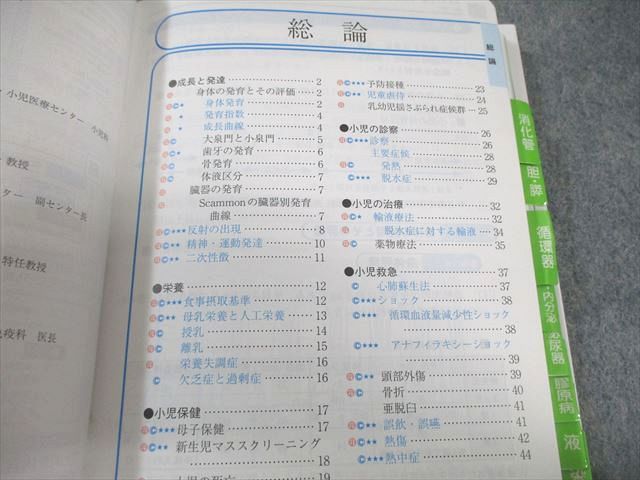 総論
●成長と発達 2
身体の発育とその評価 2
身体発育 2
発育指数 4
成長曲線 4
大泉門と小泉門 5
歯牙の発育 6
骨発育 6
体液区分 7
臓器の発育 7
Scammonの臓器別発育
曲線 7
★★★反射の出現 8
★★ 精神・運動発達 10
★★ 二次性徴 11
●栄養 12
★★★食事摂取基準 12
★★ 母乳栄養と人工栄養 13
授乳 14
離乳 15
栄養失調症 16
欠乏症と過剰症 16
●小児保健 17
★★★母子保健 17
★★ 新生児マススクリーニング
18
小児の死亡 19
★★★予防接種 23
★★ 児童虐待 24
乳幼児揺さぶられ症候群 25
●小児の診察 26
★★★診察 26
主要症候 28
発熱 28
★★★ 脱水症 29
●小児の治療 32
★ 輸液療法 32
脱水症に対する輸液 34
薬物療法 35
●小児救急 37
心肺蘇生法 37
★★★ショック 38
★★★ 循環血液量減少性ショック
38
★★★ アナフィラキシーショック
39
★★ 頭部外傷 39
骨折 40
亜脱臼 41
★★ 誤飲・誤嚥 41
★ 熱傷 42
★★★熱中症 44
総論
消化管
胆・膵
循環器
・内分泌
泌尿器
膠原病
液
・小児医療センター 小児科
教授
ター 副センター長
特任教授
疫科 医長